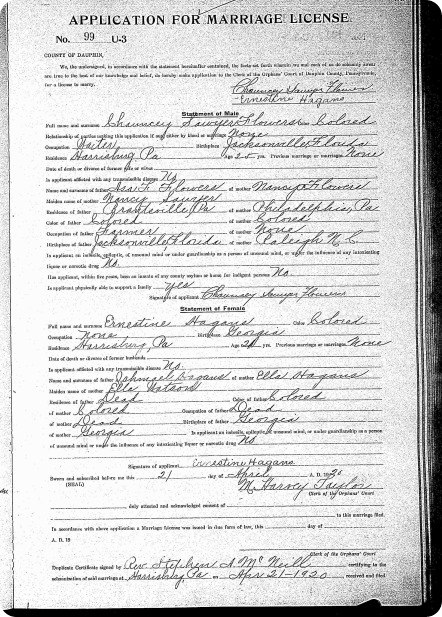 APPLICATION FOR MARRIAGE LICENSE.
No. 99 U-3
COUNTY OF DAUPHIN,
We, the undersigned, in accordance with the statement hereinafter contained, the facts set forth wherein we and each of us do solemnly swear
are true to the best of our knowledge and belief, do hereby make application to the Clerk of the Orphans' Court of Dauphin County, Pennsylvania,
for a license to marry.
Chauncey Sawyer Flowers
Ernestine Hagans
Statement of Male
Full name and surname Chauncey Sawyer Flowers Colored
Relationship of parties making this application if any either by blood or marriage None
Occupation Waiter Birthplace Jacksonville Florida
Residence Harrisburg Pa Age yrs. Previous marriage or marriages None
Date of death or divorce of former wife or wives
Is applicant afflicted with any transmissible disease No
Name and surname of father Asa F. Flowers of mother Nancy Flowers
Maiden name of mother Nancy Sawyer
Residence of father Pa of mother Philadelphia, Pa
Color of father Colored of mother Colored
Occupation of father Farmer of mother None
Birthplace of father Jacksonville Florida of mother Raleigh N. C.
Is applicant an imbecile, epileptic, of unsound mind, or under guardianship as a person of unsound mind, or under the influence of any intoxicating
liquor or narcotic drug No
Has applicant, within five years, been an inmate of any county asylum or home for indigent persons No
Is applicant physically able to support a family yes
Signature of applicant Chauncey Sawyer Flowers
Statement of Female
Full name and surname Ernestine Hagans Color Colored
Occupation None Birthplace Georgia
Residence Harrisburg, Pa Age 21 yrs. Previous marriage or marriages None
Date of death or divorce of former husband
Is applicant afflicted with any transmissible disease No
Name and surname of father Hagans of mother Ella Hagans
Maiden name of mother Ella Watson
Residence of father Dead Color of father Colored
of mother Colored Occupation of father Dead
of mother Dead Birthplace of father Georgia
of mother Georgia Is applicant an imbecile, epileptic, of unsound mind, or under guardianship as a person
of unsound mind or under the influence of any intoxicating liquor or narcotic drug No
Signature of applicant Ernestine Hagans
Sworn and subscribed before me this 21 day of April A. D. 1920
(SEAL) M. Harvey Taylor
Clerk of the Orphans' Court
duly attested and acknowledged consent of
to this marriage filed.
In accordance with above application a Marriage License was issued in due form of law, this day of
A. D. 19
Clerk of the Orphans' Court
Duplicate Certificate signed by Rev Stephen A. McNeill certifying to the
solemnization of said marriage at Harrisburg, Pa on Apr 21-1920 received and filed